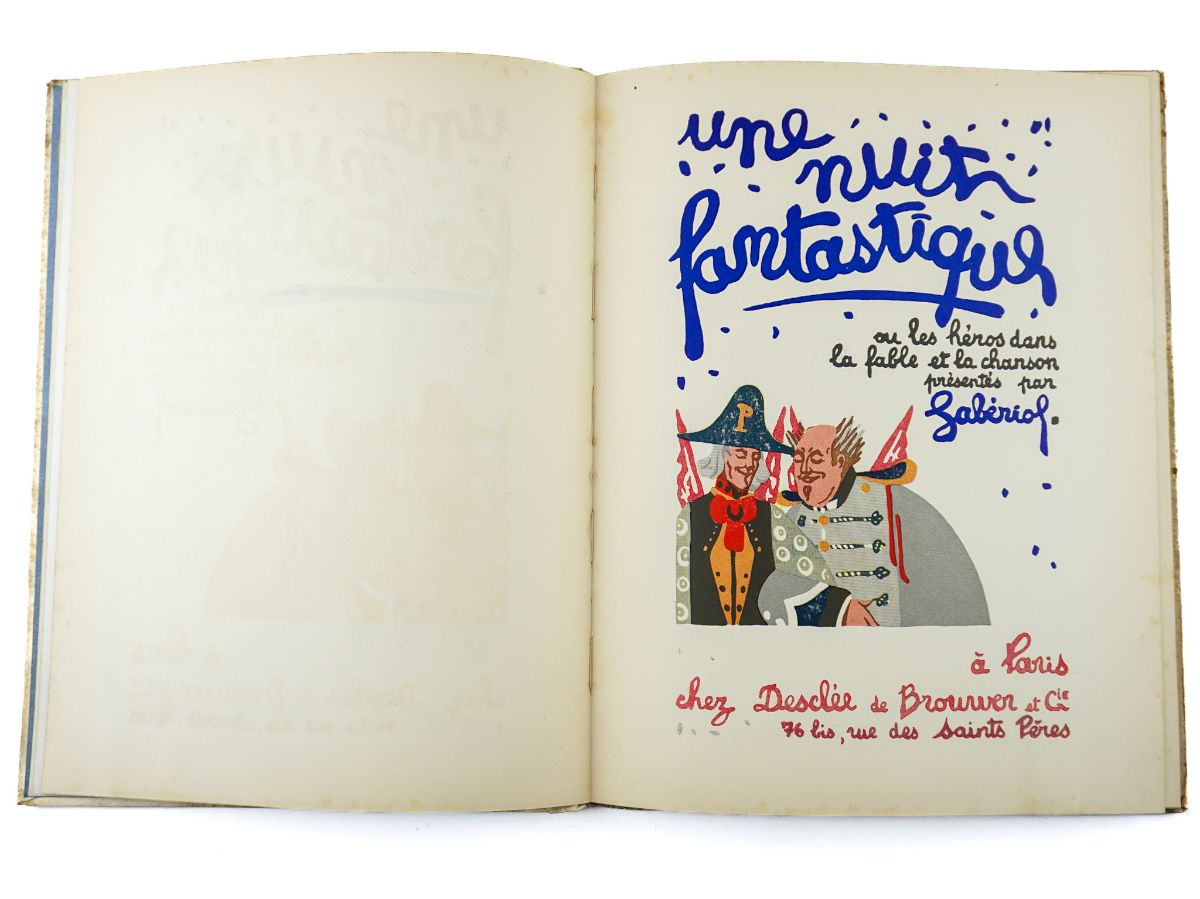 une
nuit
fantastique
ou les héros dans
la fable et la chanson
présentés par
Gabériol.
P
à Paris
chez Desclée de Brouwer et Cie
76 bis, rue des Saints Pères